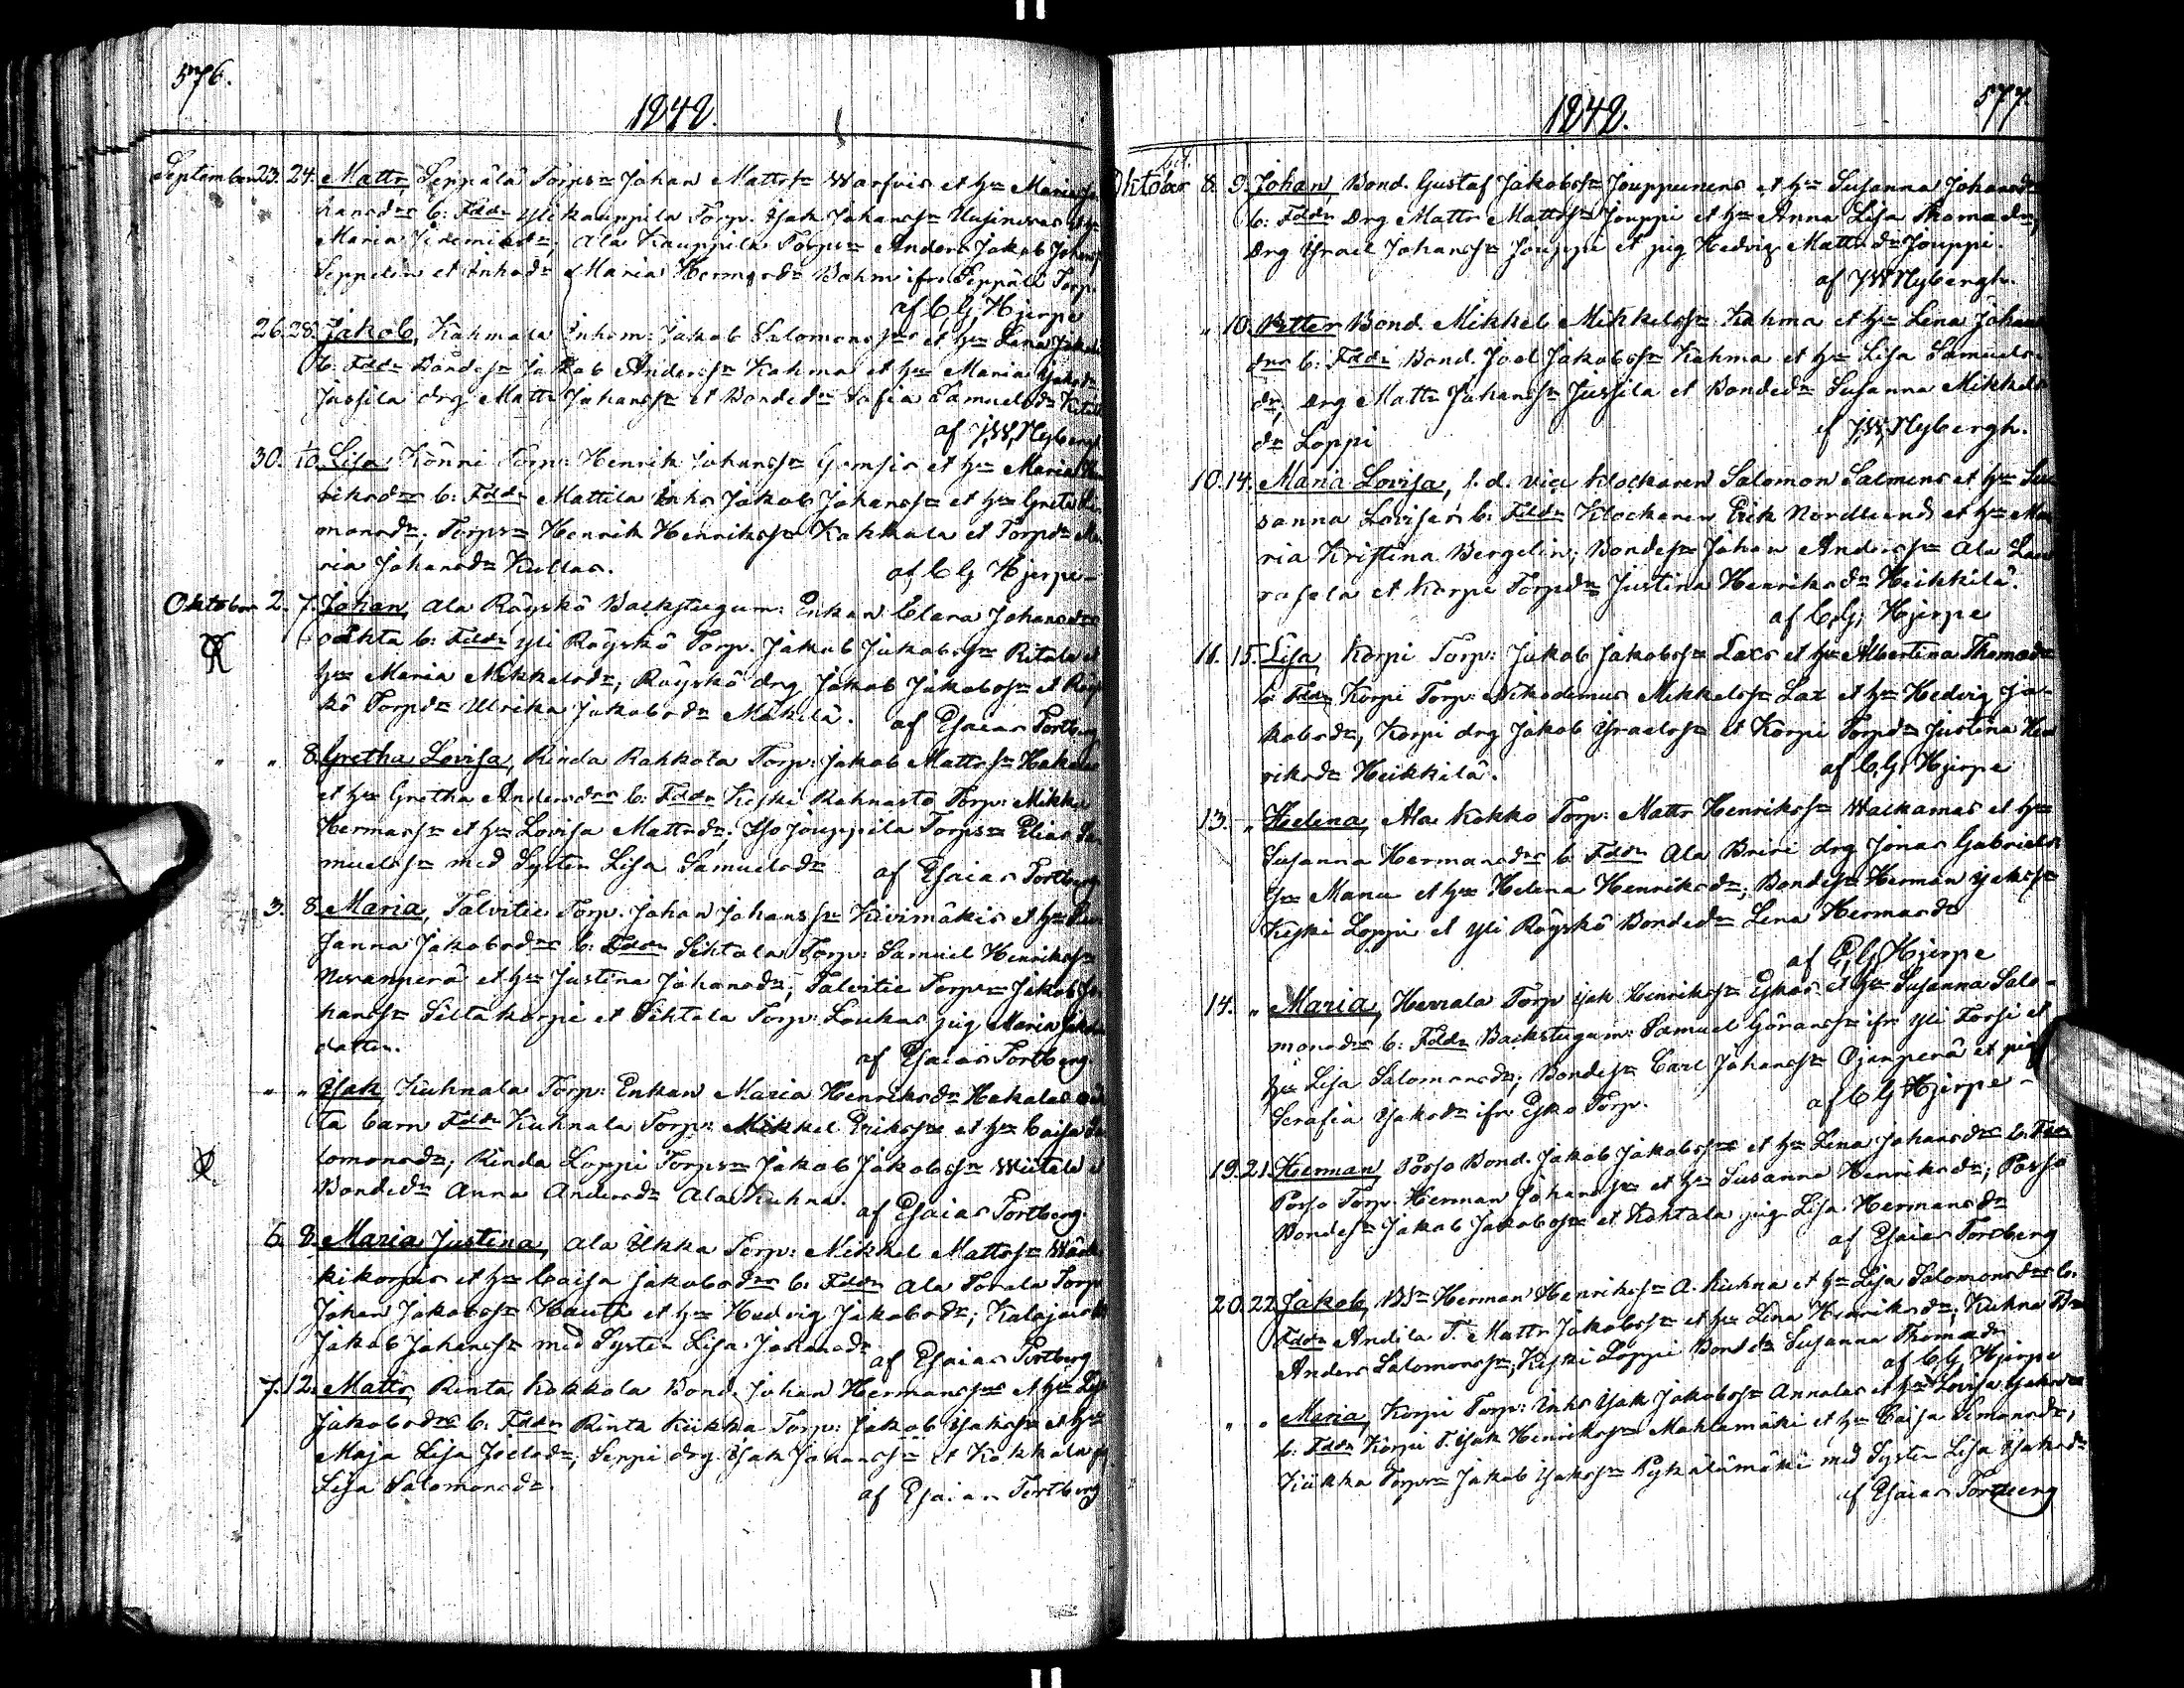 576.
1842.
September 23. 24. Matts, Seppälä Torps= Johan Mattss= Warfvis et h= Maria Jo
hansdrs b: Fddr Ylikauppila Torp. Isak Johanss= Uusinevas et h=
Maria Jeremiasd=; Ala Kauppila Torps= Anders Jakob Johans
Seppelin et Inhsd= Maria Hermansd= Böhm ifr. Seppälä Torp.
af C G Hjerpe
26. 28. Jakob, Kahmala Inhom: Jakob Salomonss= et h= Lena Jakobs
b: Fddr Bondes= Jakob Anderss= Kahma et h= Maria Jakobsd=
Jussila drg Matts Johanss= et Bonded= Sofia Samuelsd=
af J.W. Nybergh
30. 1/10 Lisa, Könni Torp: Henrik Johanss= et h= Maria Hen
riksdrs b: Fddr Mattila Inhs Jakob Johanss= et h= Greta
monsd=; Torps= Henrik Henrikss= Kokkala et Torpd= Ma
ria Johansd= Kullas. af C G Hjerpe
Oktober 2. 7. Johan, Ala Röyskö Backstugum: Enkan Clara Johansdrs
oäkta b: Fddr Yli Röyskö Torp. Jakob Jakobss= Ritala et
h= Maria Mikkelsd=; Röyskö drg Jakob Jakobss= et Röys
kö Torpd= Ulrika Jakobsd= Mäkelä. af Esaias Tortberg
" " 8. Gretha Lovisa, Rinda Kokkola Torp: Jakob Mattss= Hakalas
et h= Gretha Andersdrs b: Fddr Keski Rahnasto Torp: Mikkel
Hermanss= et h= Lovisa Mattsd=; Iso Jouppila Torps= Elias Sa
muelss= med Syster Lisa Samuelsd= af Esaias Tortberg
3. 8. Maria, Talvitie Torp. Johan Johanss= Kivimäkis et h= Su
sanna Jakobsdrs b: Fddr Sihtala Torp: Samuel Henrikss=
Nevanperä et h= Justina Johansd=; Talvitie Torps= Jakob Jo
hanss= Siltakorpi et Sihtala Torp: Loukas pig Maria
datter. af Esaias Tortberg.
" " Isak, Kuhnala Torp: Enkan Maria Henriksd= Hakalas oäk
ta barn Fddr Kuhnala Torp: Mikkel Erikss= et h= Caisa Sa
lomonsd=; Rinda Loppi Torps= Jakob Jakobss= Wiitala et
Bonded= Anna Andersd= Ala Kuhna. af Esaias Tortberg.
6. 8. Maria Justina, Ala Ikka Torp: Mikkel Mattss=
kikorpis et h= Caisa Jakobsdrs b: Fddr Ala Torala Torp
Johan Jakobss= Hauta et h= Hedvig Jakobsd=;
Jakob Johanss= med Syster Lisa Johansd=
af Esaias Tortberg
7. 12. Matts, Rinta Kokkola Bond. Johan Hermanss= et h= Lisa
Jakobsdrs b: Fddr Rinta Kiikka Torp: Jakob Isakss= et h=
Maja Lisa Joelsd=; Seppi drg. Isak Johanss= et Kokkala pig
Lisa Salomonsd=. af Esaias Tortberg
577
1842.
Oktober 8. 9. Johan, Bond. Gustaf Jakobss= Jouppinens et h= Susanna Johansdrs
b: Fddr Drg Matts Mattss= Jouppi et h= Anna Lisa Thomasdr;
Drg Israel Johanss= Jouppi et pig Hedvig Mattsd= Jouppi.
af J W Nybergh.
" 10. Petter Bond. Mikkel Mikkelss= Kahma et h= Lena Johans
drs b: Fddr Bond. Joel Jakobss= Kahma et h= Lisa Samuels
dr; Drg Matts Johanss= Jussila et Bonded= Susanna Mikkels
d= Loppi af J.W. Nybergh.
10. 14. Maria Lovisa, f. d. Vice Klockaren Salomon Salmens et h= Su
sanna Lovisas b: Fddr Klockaren Erik Nordlund et h= Ma
ria Kristina Bergelin; Bondes= Johan Anderss= Ala Lau
rosela et Korpi Torpd= Justina Henriksd= Heikkilä.
af C.G. Hjerpe
11. 15. Lisa Korpi Torp: Jakob Jakobss= Laxs et h= Albertina Thomasd=
b: Fddr Korpi Torp: Nikodemus Mikkelss= Lax et h= Hedvig Ja-
kobsd=; Korpi drg Jakob Israelss= et Korpi Torpd= Justina Hen
riksd= Heikkilä. af C.G. Hjerpe
13. " Helena, Ala Kokko Torp: Matts Henrikss= Walkamas et h=
Susanna Hermansdrs b. Fddr Ala Briri drg Jonas Gabriels
s= Manu et h= Helena Henriksd=; Bondes= Herman Isakss=
Keski Loppi et Yli Röyskö Bonded= Lena Hermansd=
af C G Hjerpe
14. " Maria, Herrala Torp Isak Henrikss= Eskos et h= Susanna Salo-
monsdrs b: Fddr Backstugum: Samuel Göranss= ifr Yli Torsi et
h= Lisa Salomonsd=; Bondes= Carl Johanss= Ojanperä et pig
Serafia Isaksd= ifr Esko Torp. af C G Hjerpe -
19. 21. Herman, Porso Bond. Jakob Jakobss= et h= Lena Johansdrs b. Fddr
Porso Torp. Herman Johanss= et h= Susanna Henriksd=; Porso
Bondes= Jakob Jakobss= et Kohtala pig Lisa Hermansd=
af Esaias Tortberg
20. 22. Jakob, Bs= Herman Henrikss= A. Kuhna et h= Lisa Salomonsdrs b.
Fddr Andila T. Matts Jakobss= et h= Lena Henriksd=; Kuhna Bs=
Anders Salomonss=; Keski Loppi Bondd= Susanna Thomasdr
af C G Hjerpe
" " Maria, Korpi Torp: Inhs Isak Jakobss= Annalas et h= Lovisa Isaksdrs
b: Fddr Korpi T. Isak Henrikss= Mahlamäki et h= Caisa Simonsd=;
Kiikka Torps= Jakob Isakss= Pykälämäki med Syster Lisa Isaksd=
af Esaias Tortberg